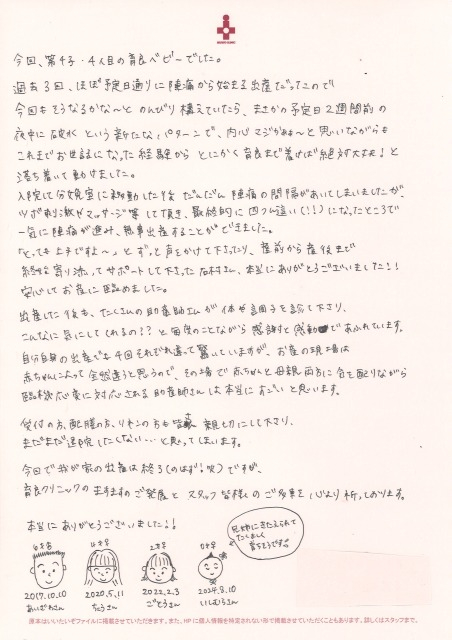 今回、第4子・4人目の育良ベビーでした。
過去3回、ほぼ予定日通りに陣痛から始まる出産だったので
今回もそうなるかな〜と のんびり構えていたら、まさかの予定日2週間前の
夜中に破水 という新たなパターンで、内心 マジかぁ〜と思いながらも
これまでお世話になった経験から とにかく育良まで着けば絶対大丈夫!と
落ち着いて動けました。
入院して分娩室に移動した後 だんだん陣痛の間隔があいてしまいましたが、
ツボ刺激やマッサージ等して頂き、最終的に四つん這い(!!)になったところで
一気に陣痛が進み、無事出産することができました。
「とっても上手ですよ〜」とずっと声をかけて下さったり、産前から産後まで
終始寄り添ってサポートして下さった石村さん、本当にありがとうございました!!
安心してお産に臨めました。
出産した後も、たくさんの助産師さんが体や調子を診て下さり、
こんなに気にしてくれるの??と毎度のことながら感謝と感動であふれています。
自分自身の出産でも4回それぞれ違って驚いていますが、お産の現場は
赤ちゃんによって全然違うと思うので、その場で赤ちゃんと母親両方に気を配りながら
臨機応変に対応される助産師さんは本当にすごいと思います。
受付の方、配膳の方、リネンの方も皆さま親切にして下さり、
まだまだ退院したくない…と思ってしまいます。
今回で我が家の出産は終了(のはず!笑)ですが、
育良クリニックの益々のご発展と スタッフ皆様のご多幸を心より祈っております。
本当にありがとうございました!!
兄姉にきたえられて
たくましく
育ちそうです
6才
4才
2才
0才
2017.10.10
2020.5.11
2022.2.3
2024.8.10
さん
さん
ごとうさん
いしむらさん
原本はいいたいぞファイルに掲載させていただきます。また、HPに個人情報を特定されない形で掲載させていただくこともあります。詳しくはスタッフまで。